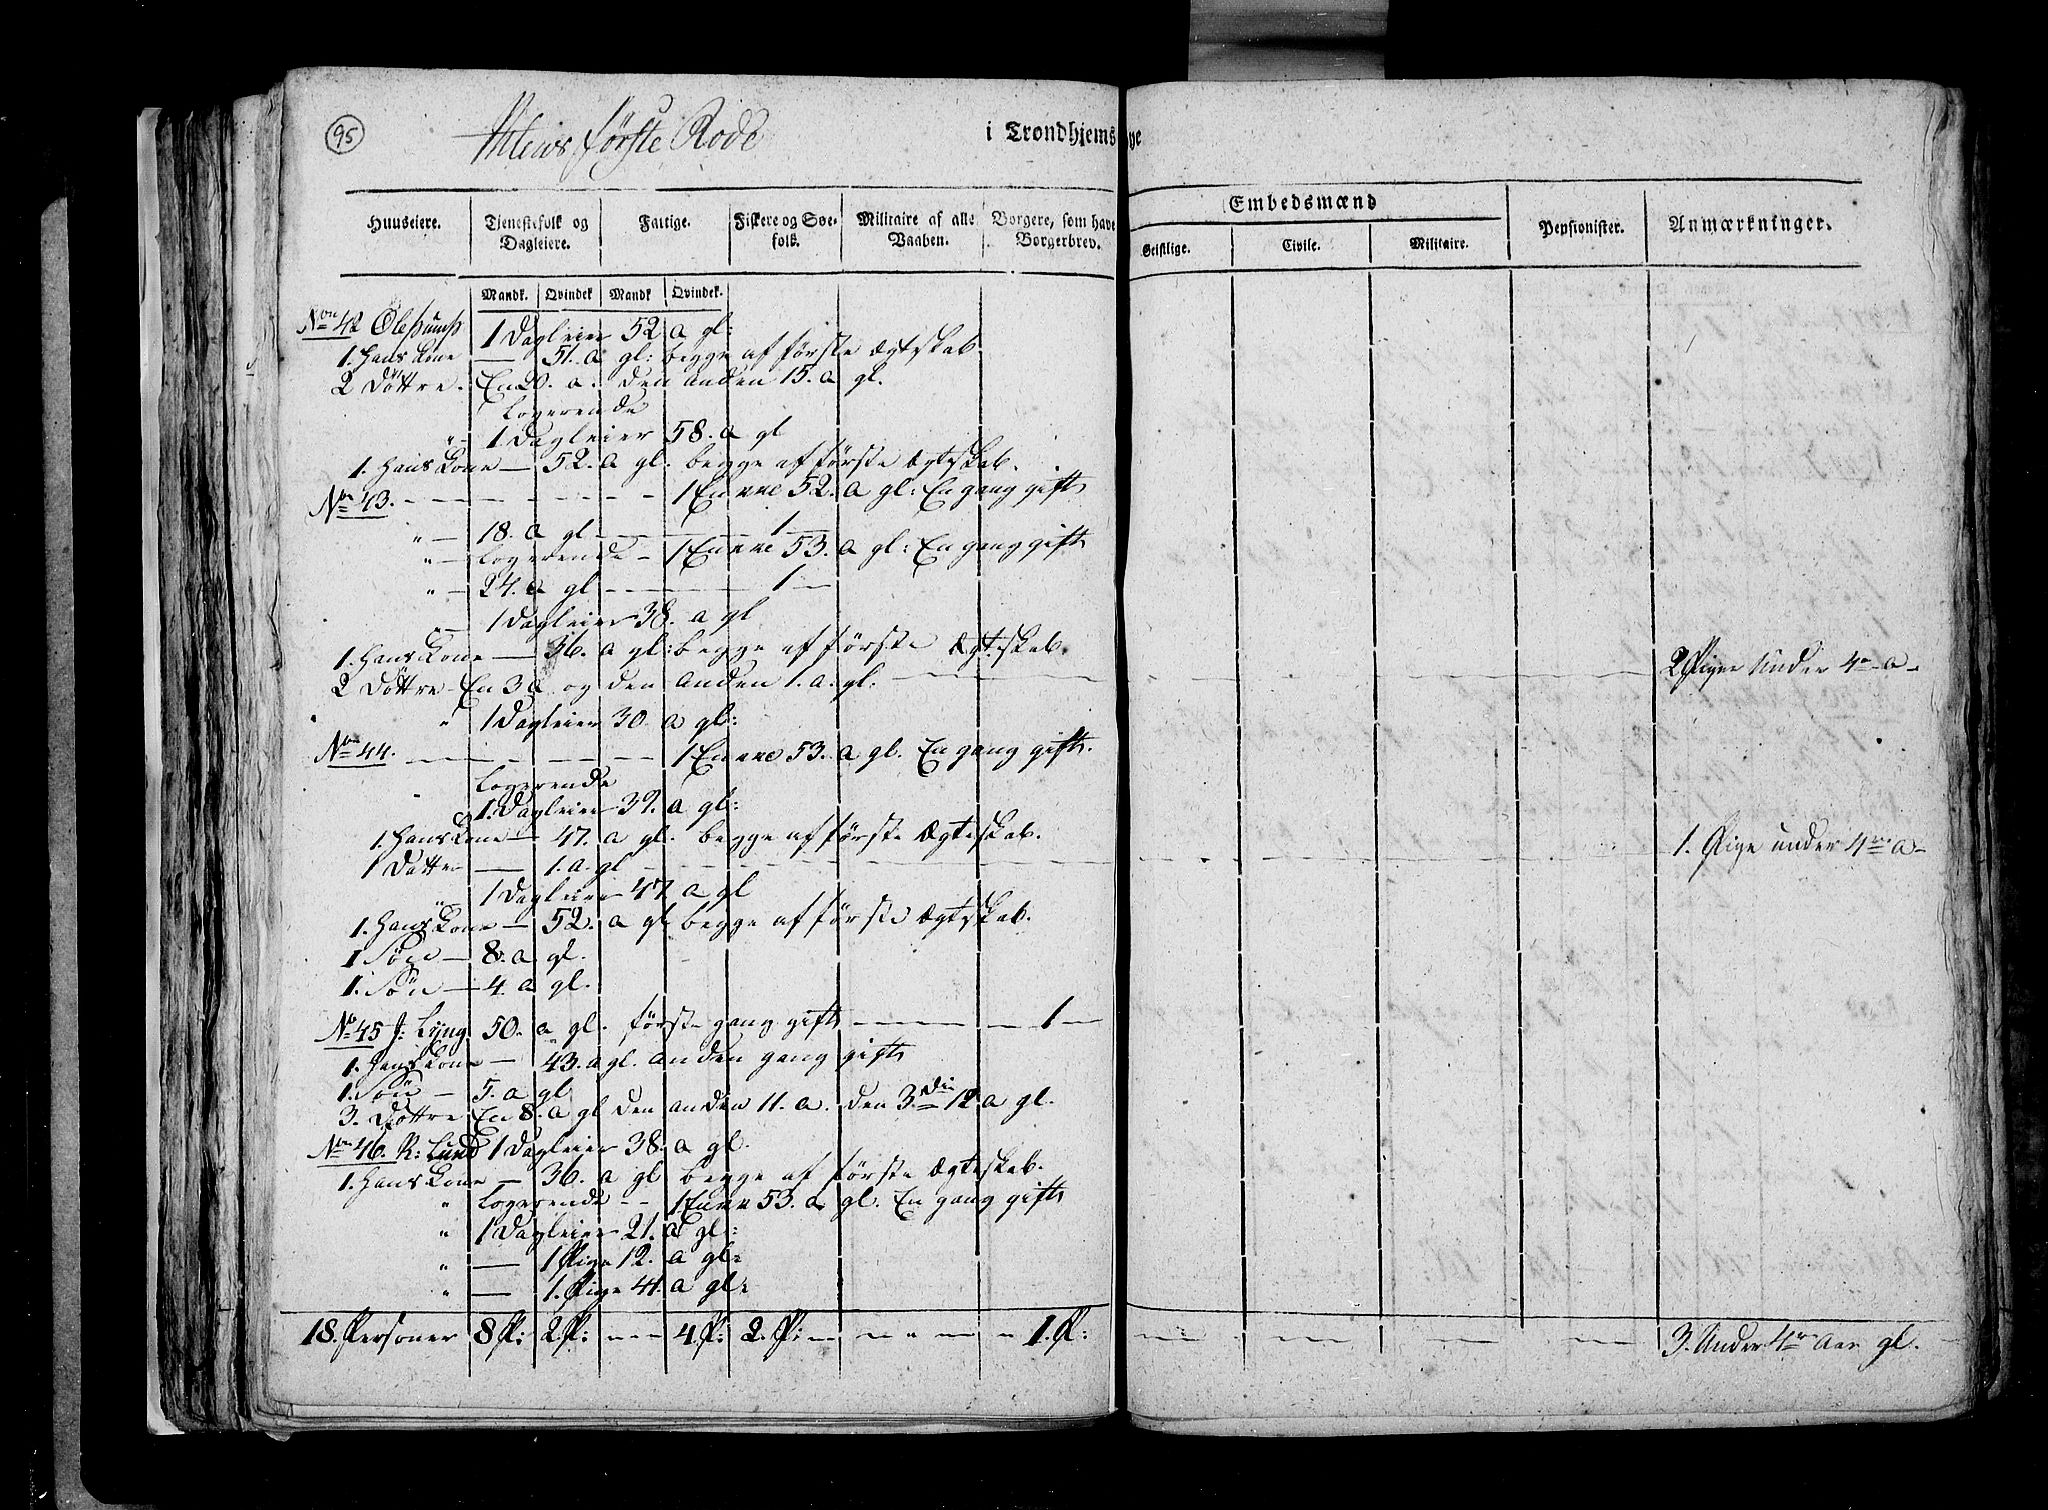 95
Ihlens første Rode
i Trondhjems Bye
Huuseiere.
Tjenestefolk og Dagleiere.
Fattige.
Fiskere og Søefolk.
Militaire af alle Vaaben.
Borgere, som have Borgerbrev.
Embedsmænd
Geistlige.
Civile.
Militaire.
Pensionister.
Anmærkninger.
Mandk. Qvindek Mandk Qvindek.
No 42 Ole 1 Dagleier 52 a gl:
1. Hans Kone — 51. a gl: begge af første Ægteskab
2 Døttre. En 20. a. den anden 15. a gl.
Logerende
" 1 Dagleier 58. a gl
1. Hans Kone — 52. a gl. begge af første Ægteskab.
No 43. — — — 1 Enke 52. a gl: En gang gift
" — 18. a gl — — — 1 —
" — Logerende — 1 Enke 53. a gl: En gang gift
" — 24. a gl — — — 1 —
" — 1 Dagleier 38. a gl
1. Hans Kone — 36. a gl: begge af første Ægteskab.
2 Døttre En 3 a og den anden 1. a. gl. — — — 2 Piger Under 4re a —
" 1 Dagleier 30. a gl:
No 44. — — — 1 Enke 53. a gl. En gang gift.
Logerende
1. Dagleier 32. a gl:
1. Hans Kone — 47. a gl. begge af første Ægteskab.
1 Datter — 1. a. gl — — — 1. Pige under 4re a —
" 1 Dagleier 47 a gl
1. Hans Kone — 52. a gl begge af første Ægteskab.
1 Søn — 8. a gl.
1. Søn — 4. a gl.
No 45 J: Lyng. 50. a gl. første gang gift — — — 1 —
1. Hans Kone — 43. a gl. anden gang gift
1. Søn — 5. a gl
3. Døttre En 8. a gl den anden 11. a. den 3die 12 a gl.
No 46. R: Lund 1 Dagleier 38. a gl.
1. Hans Kone — 36. a gl begge af første Ægteskab.
" Logerende — — 1 Enke 53. a gl. En gang gift
" 1 Dagleier 21. a gl:
" — 1 Pige 12. a gl:
" — 1. Pige 41. a gl:
18. Personer 8 P: 2 P: — — 4. P: 2. P: — — — 1. P: — — — 3. Under 4re Aar gl.